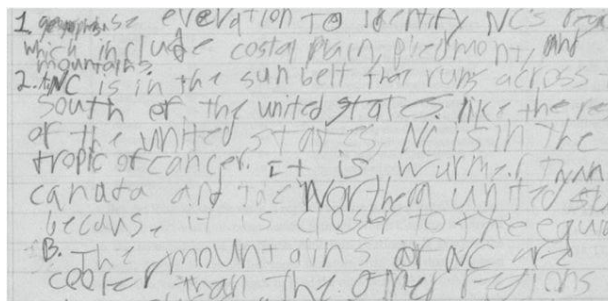 1. use elevation to identify NC's reg
which include costal plain, piedmont, and
mountains.
2. A. NC is in the sun belt that runs across
south of the united states. like the re
of the united states, NC is in the
tropic of cancer. It is wurmer than
canada and the Northern united sta
becaus it is closer to the equa
B. The mountains of NC are
cooler than the other regions